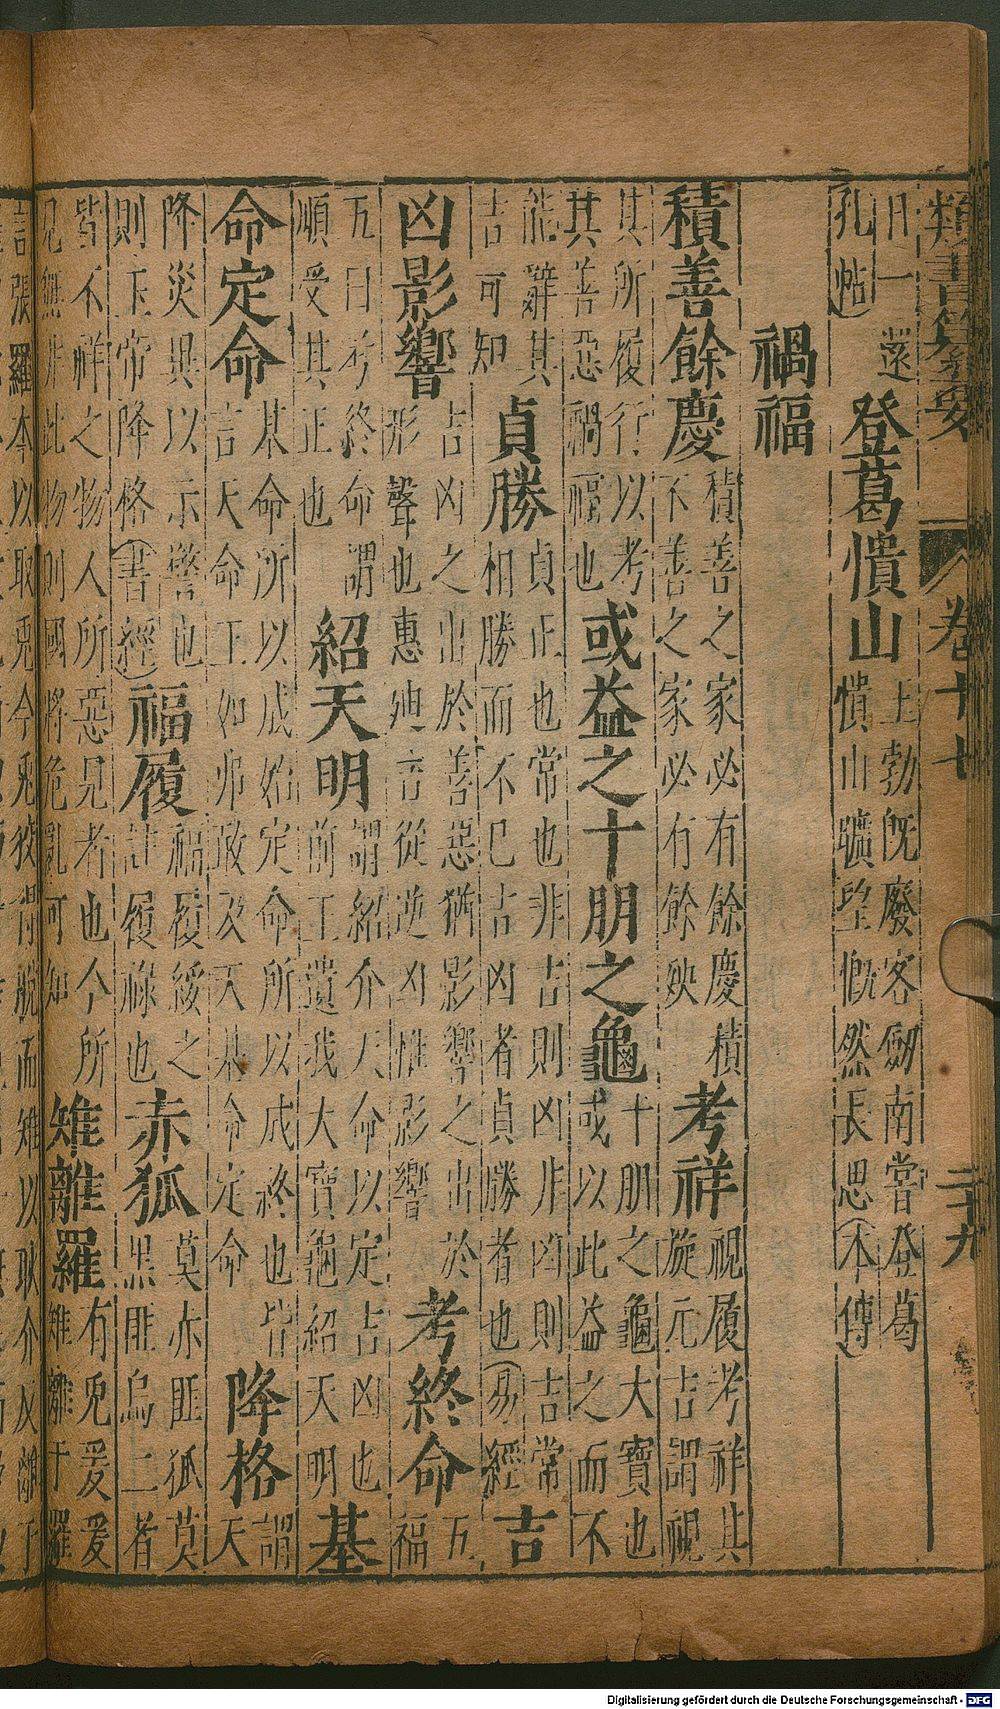 類書纂要 卷十七 二十九
日一還
孔帖
登葛憒山
上勃既廢客劒南嘗登葛
憒山曠望慨然長思(本傳)
禍福
積善餘慶
積善之家必有餘慶積
不善之家必有餘殃
考祥
視履考祥其
旋元吉謂視
其所履行以考
其善惡禍福也
或益之十朋之龜
十朋之龜大寶也
或以此益之而不
能辭其
吉可知
貞勝
貞正也常也非吉則凶非凶則吉常
相勝而不已吉凶者貞勝者也(易經
吉
凶影響
吉凶之出於善惡猶影響之出於
形聲也惠廸言從逆凶惟影響
考終命
五
福
五曰考終命謂
順受其正也
紹天明
謂紹介天命以定吉凶也
前王遺我大寶龜紹天明
基
命定命
基命所以成始定命所以成終也皆
言天命王如弗敢及天基命定命
降格
謂
天
降災異以示警也
則玉帝降格(書經)
福履
福履綏之
註履祿也
赤狐
莫赤匪狐莫
黑匪烏二者
皆不祥之物人所惡見者也今所
見無非此物則國將危亂可知
雉離羅
有兎爰爰
雉離于羅
言張羅本以取兎今兎狡得脫而雉以耿介反離于
Digitalisierung gefördert durch die Deutsche Forschungsgemeinschaft - DFG